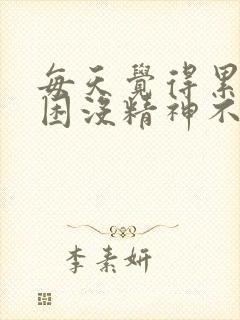 每天覺得累
困沒精神不
李素妍